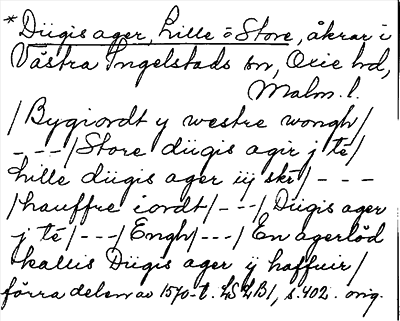 *Diigis ager, Lille o Store, åkrar i
Västra Ingelstads sn, Oxie hd,
Malm. l.
/Bygiordt y westre wongh/
---/Store diigis agir j té/
Lille diigis ager iij skr/---
/hauffre iordt/---/Diigis ager
j té/---/Engh/---/En agerlöd
kallis Diigis ager ij haffuir/
förra delen av 1570-t. LSLB1, s. 402. orig.